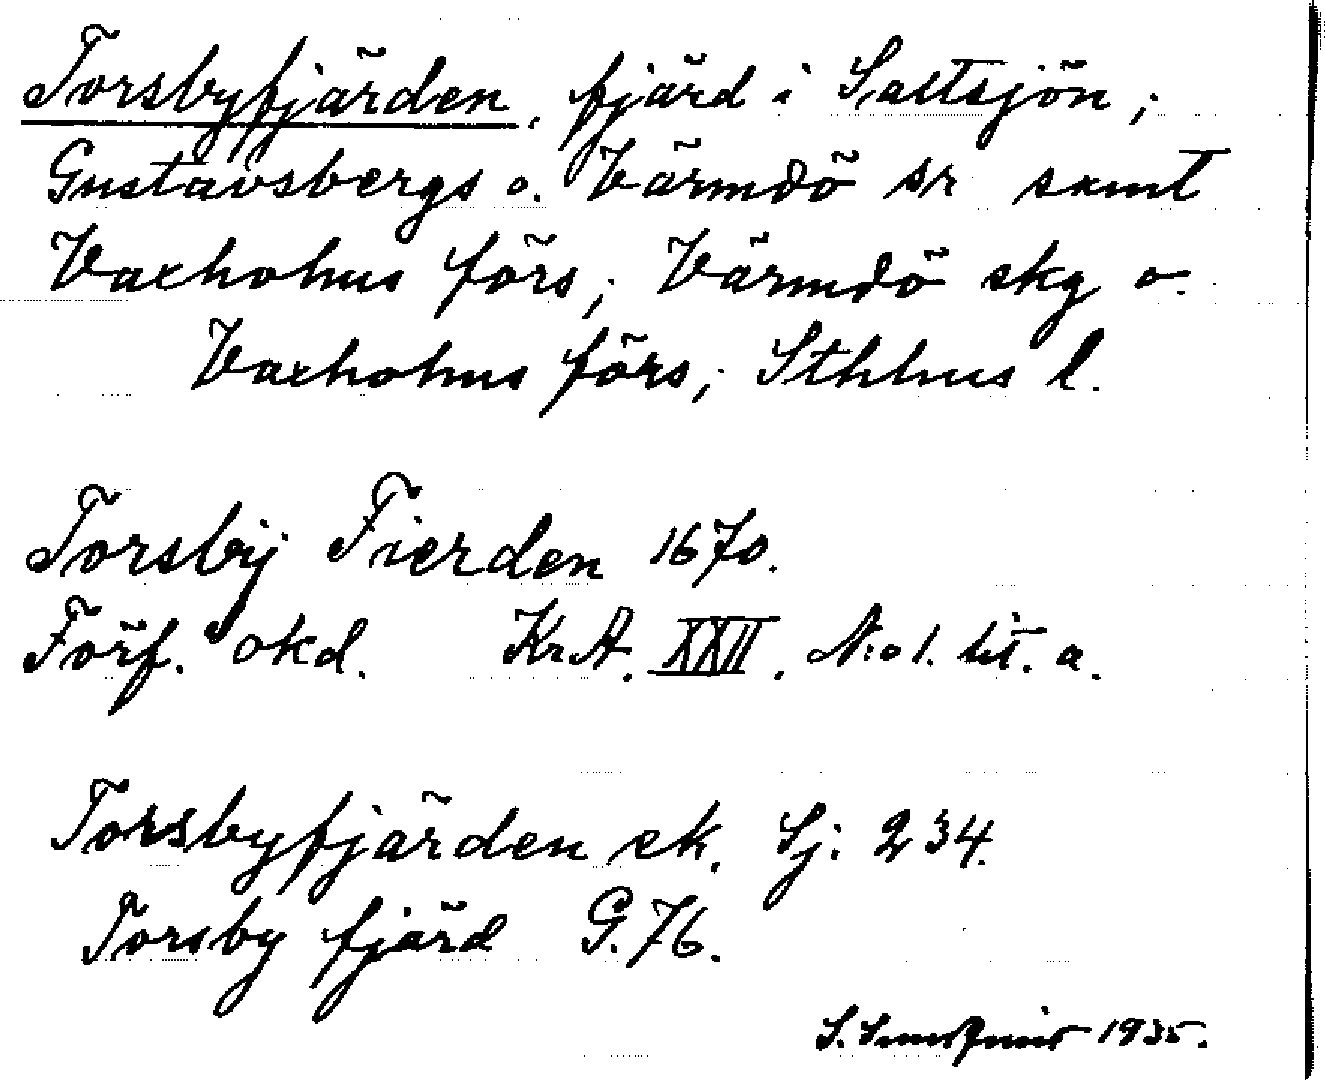 Torsbyfjärden, fjärd i Saltsjön;
Gustavsbergs o. Värmdö sr samt
Vaxholms förs; Värmdö skg o.
Vaxholms förs; Sthlms l.
Torsbij Fierden 1670.
Förf. okd. KrA. XXII. N:o 1. lit. a.
Torsbyfjärden ek. Sj. 234.
Torsby fjärd G. 76.
S. 1935.